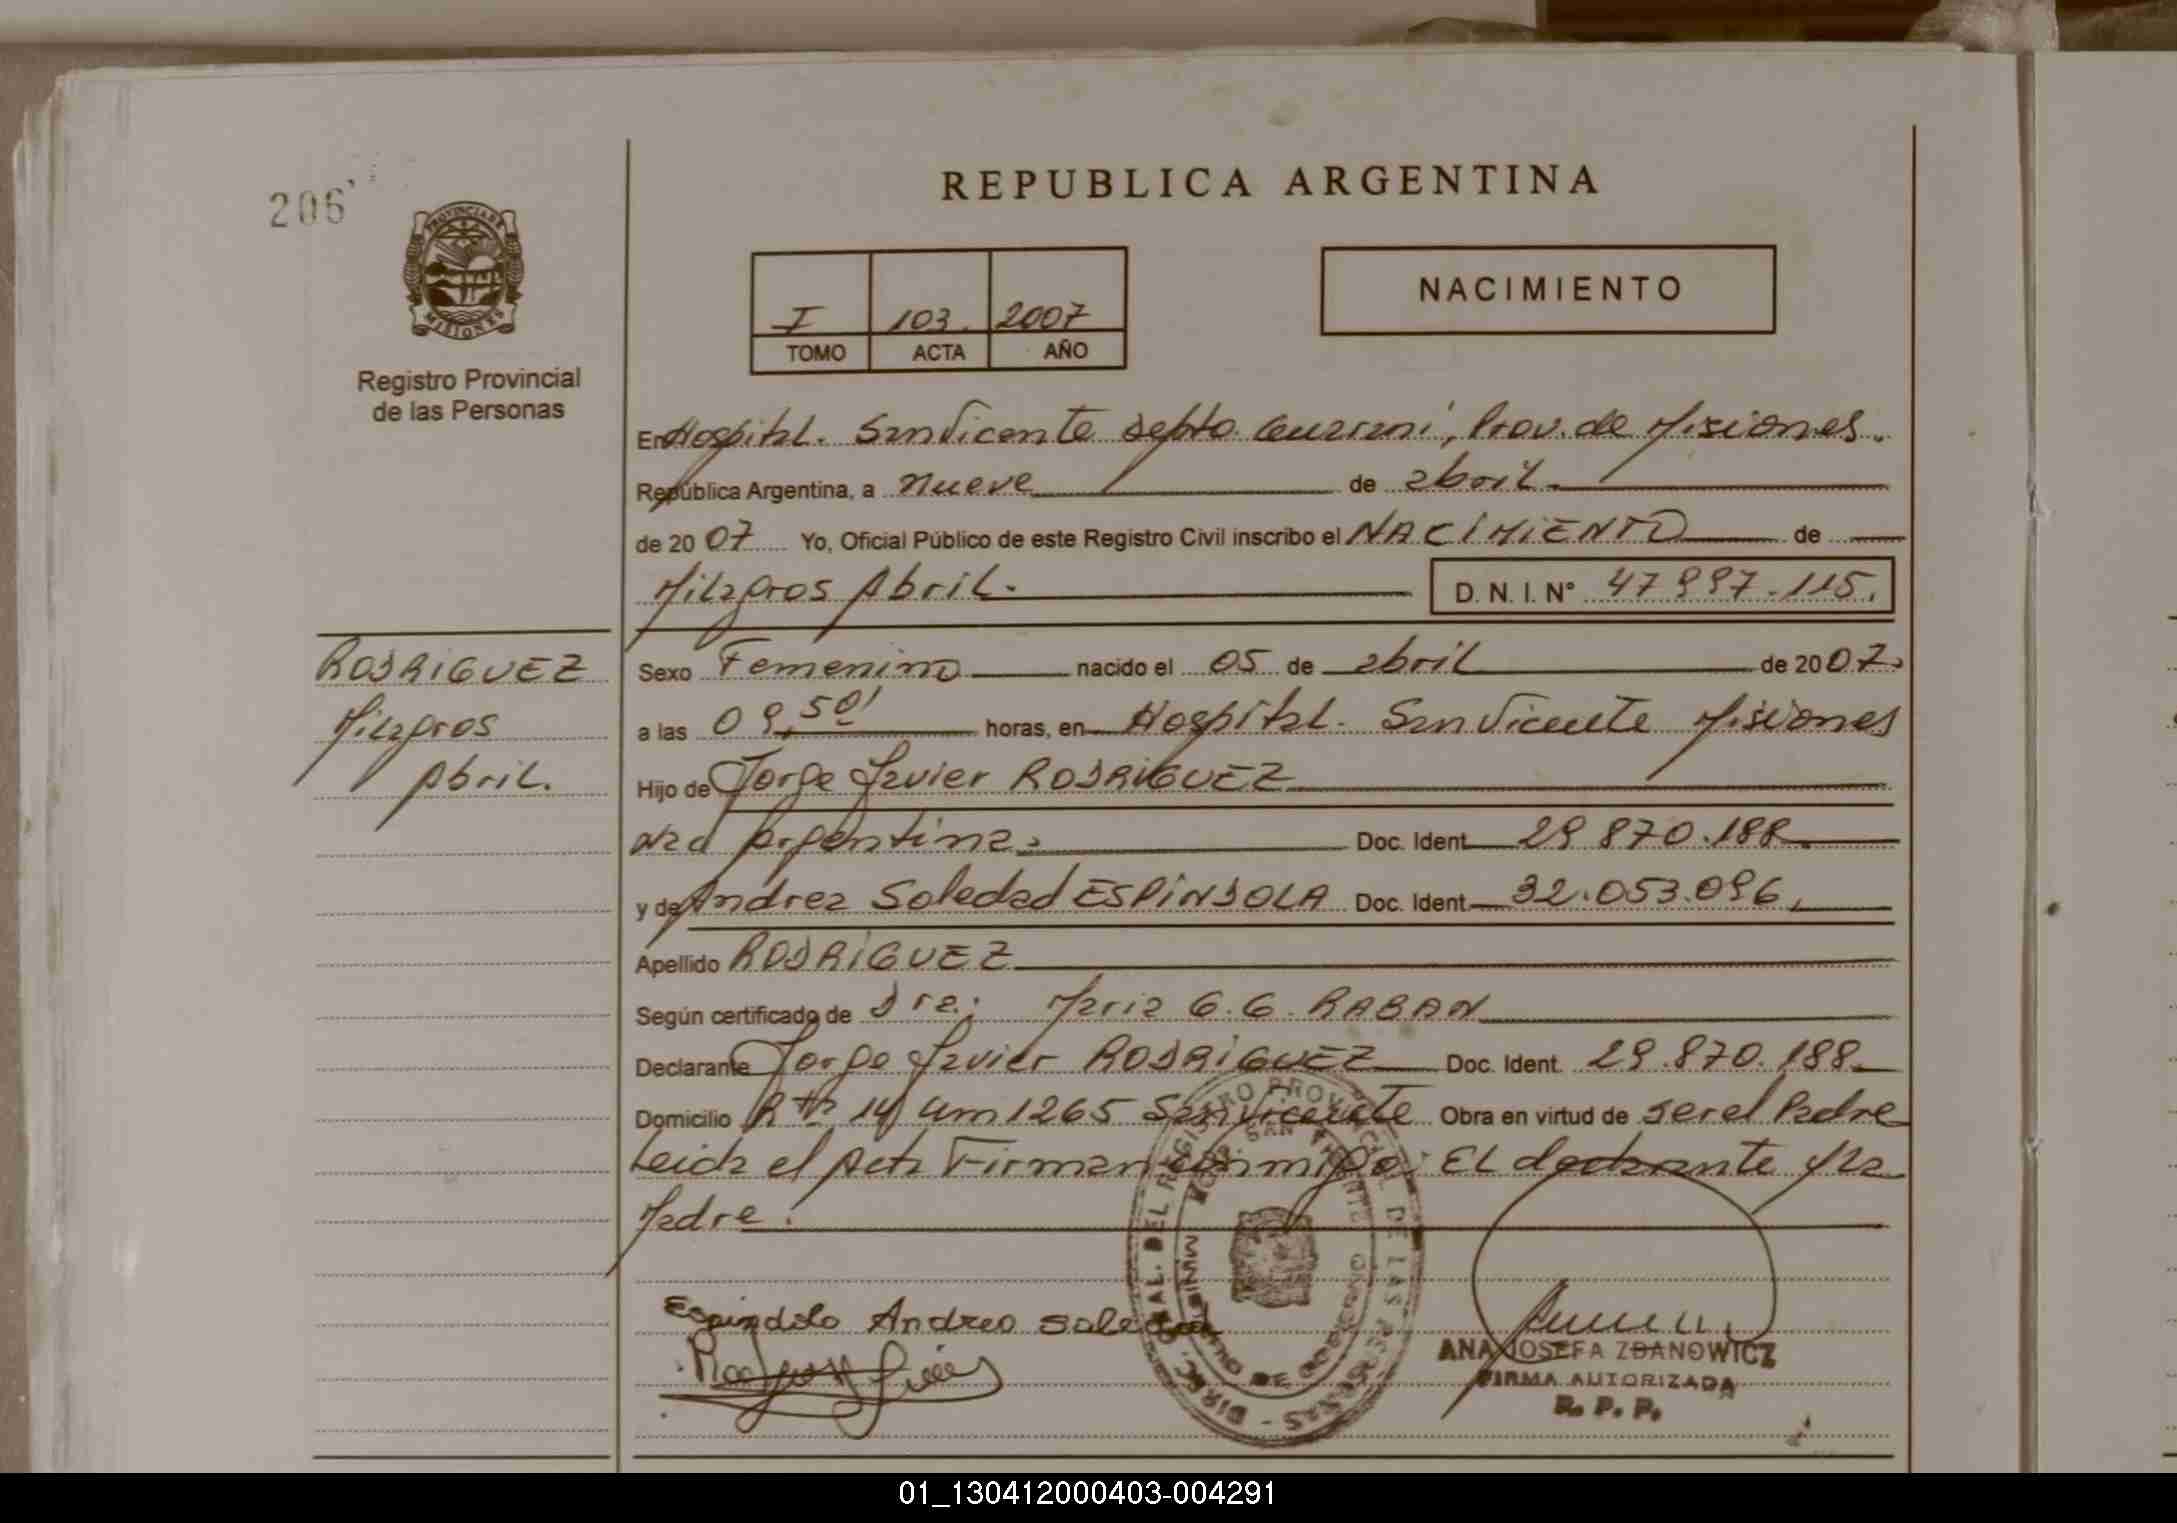 206
PROVINCIA DE
MISIONES
Registro Provincial
de las Personas
REPUBLICA ARGENTINA
I 103. 2007
TOMO ACTA AÑO
NACIMIENTO
En Hospital. San Vicente Depto. Guarani, Prov. de Misiones.
República Argentina, a nueve de abril.
de 2007 Yo, Oficial Público de este Registro Civil inscribo el NACIMIENTO de
Milagros Abril. D. N. I. N° 47 997.115.
RODRIGUEZ
Milagros
Abril.
Sexo Femenino nacido el 05 de abril de 2007.
a las 09,50' horas, en Hospital. San Vicente Misiones
Hijo de Jorge Javier RODRIGUEZ
Nac Argentina. Doc. Ident. 29 870.188.
y de Andrea Soledad ESPINDOLA Doc. Ident. 32.053.096.
Apellido RODRIGUEZ
Según certificado de Dra. Maria G. G. RABAN
Declarante Jorge Javier RODRIGUEZ Doc. Ident. 29.870.188.
Domicilio Rta 14 Km 1265 San Vicente Obra en virtud de ser el Padre
Leida el Acta Firman conmigo: EL declarante y la
Madre.
Espindola Andrea Soledad
ANA JOSEFA ZDANOWICZ
FIRMA AUTORIZADA
R. P. P.
DIREC. GRAL. DEL REGISTRO PROVINCIAL DE LAS PERSONAS
MINISTERIO DE GOBIERNO
SAN VICENTE
01_130412000403-004291